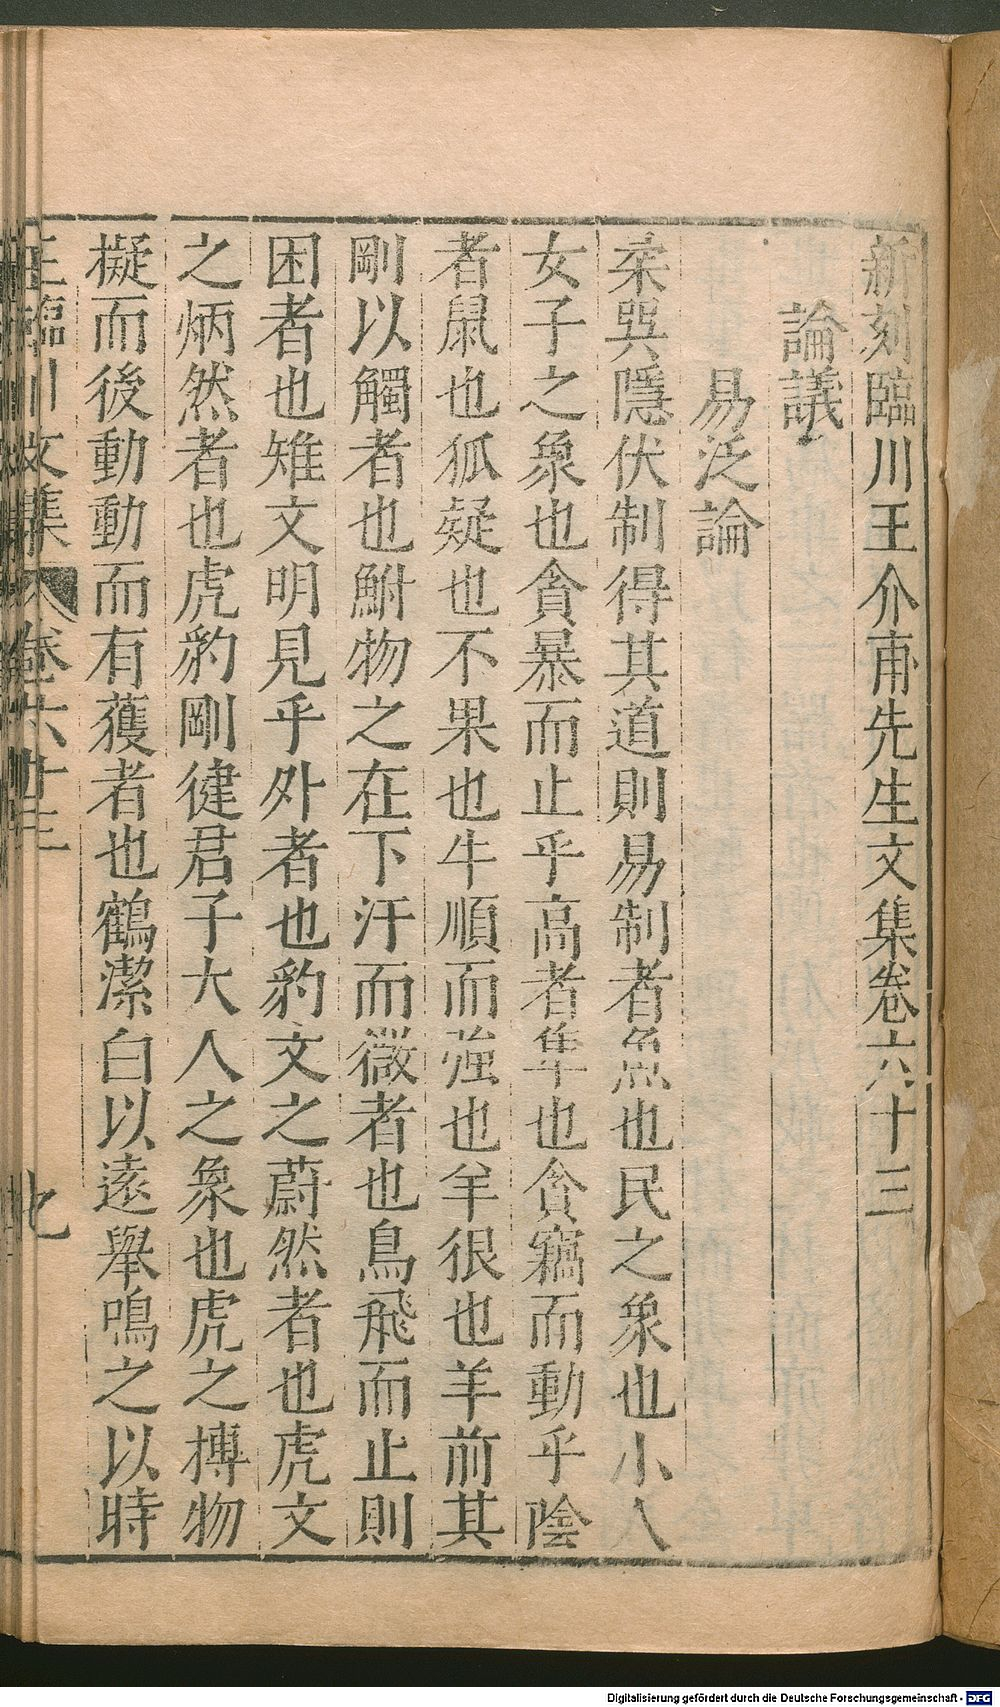 新刻臨川王介甫先生文集卷六十三
論議
易泛論
柔巽隱伏制得其道則易制者魚也民之象也小人
女子之象也貪暴而止乎高者隼也貪竊而動乎陰
者鼠也狐疑也不果也牛順而強也羊很也羊前其
剛以觸者也鮒物之在下汙而微者也鳥飛而止則
困者也雉文明見乎外者也豹文之蔚然者也虎文
之炳然者也虎豹剛健君子大人之象也虎之搏物
擬而後動動而有獲者也鶴潔白以遠舉鳴之以時
王臨川文集 卷六十三
Digitalisierung gefördert durch die Deutsche Forschungsgemeinschaft - DFG